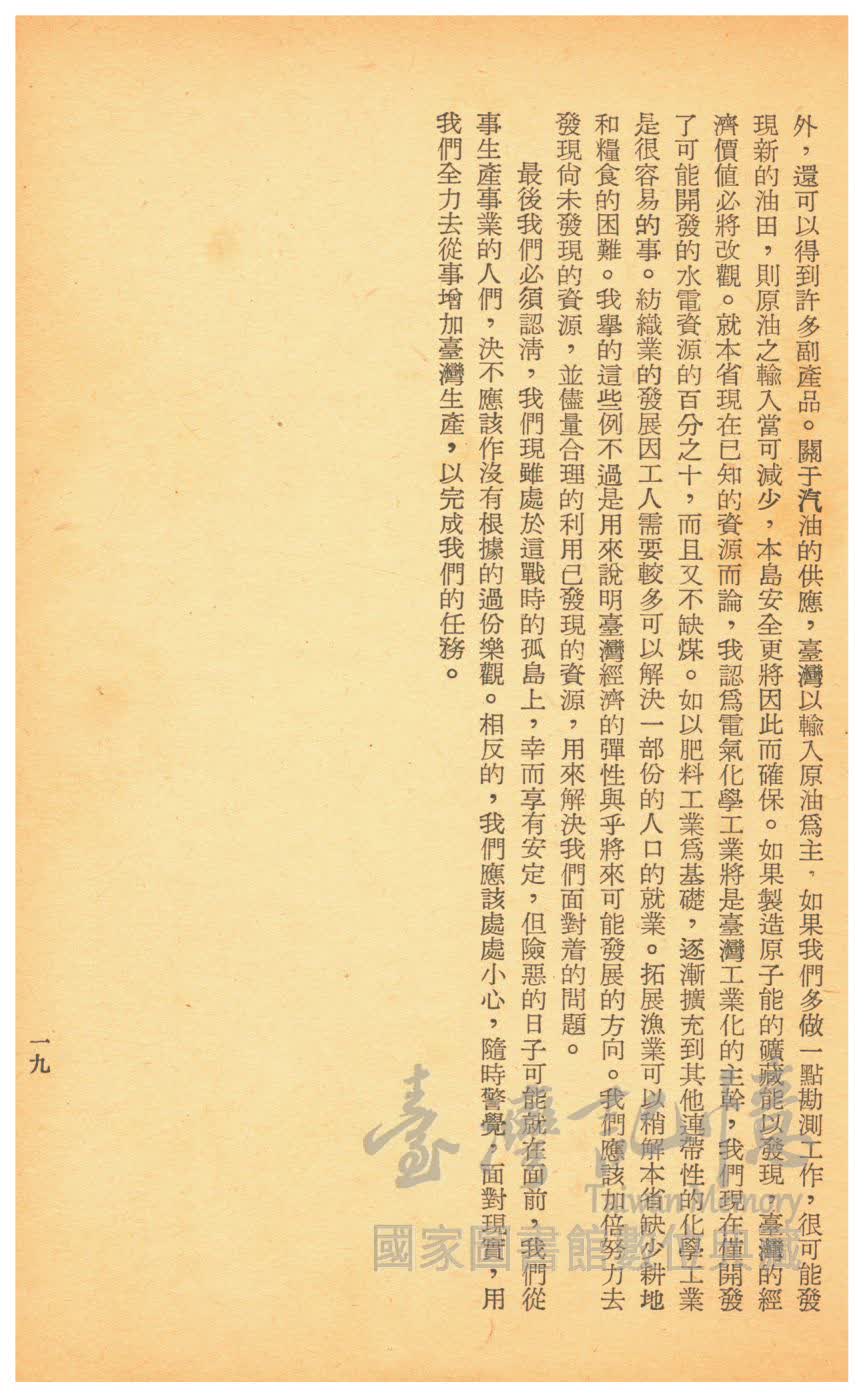 外，還可以得到許多副產品。關于汽油的供應，臺灣以輸入原油爲主，如果我們多做一點勘測工作，很可能發
現新的油田，則原油之輸入當可減少，本島安全更將因此而確保。如果製造原子能的礦藏能以發現，臺灣的經
濟價值必將改觀。就本省現在已知的資源而論，我認爲電氣化學工業將是臺灣工業化的主幹，我們現在僅開發
了可能開發的水電資源的百分之十，而且又不缺煤。如以肥料工業爲基礎，逐漸擴充到其他連帶性的化學工業
是很容易的事。紡織業的發展因工人需要較多可以解決一部份的人口的就業。拓展漁業可以稍解本省缺少耕地
和糧食的困難。我舉的這些例不過是用來說明臺灣經濟的彈性與乎將來可能發展的方向。我們應該加倍努力去
發現尙未發現的資源，並儘量合理的利用已發現的資源，用來解決我們面對着的問題。
最後我們必須認淸，我們現雖處於這戰時的孤島上，幸而享有安定，但險惡的日子可能就在面前，我們從
事生產事業的人們，決不應該作沒有根據的過份樂觀。相反的，我們應該處處小心，隨時警覺，面對現實，用
我們全力去從事增加臺灣生產，以完成我們的任務。
一九
臺灣記憶
Taiwan Memory
國家圖書館數位典藏